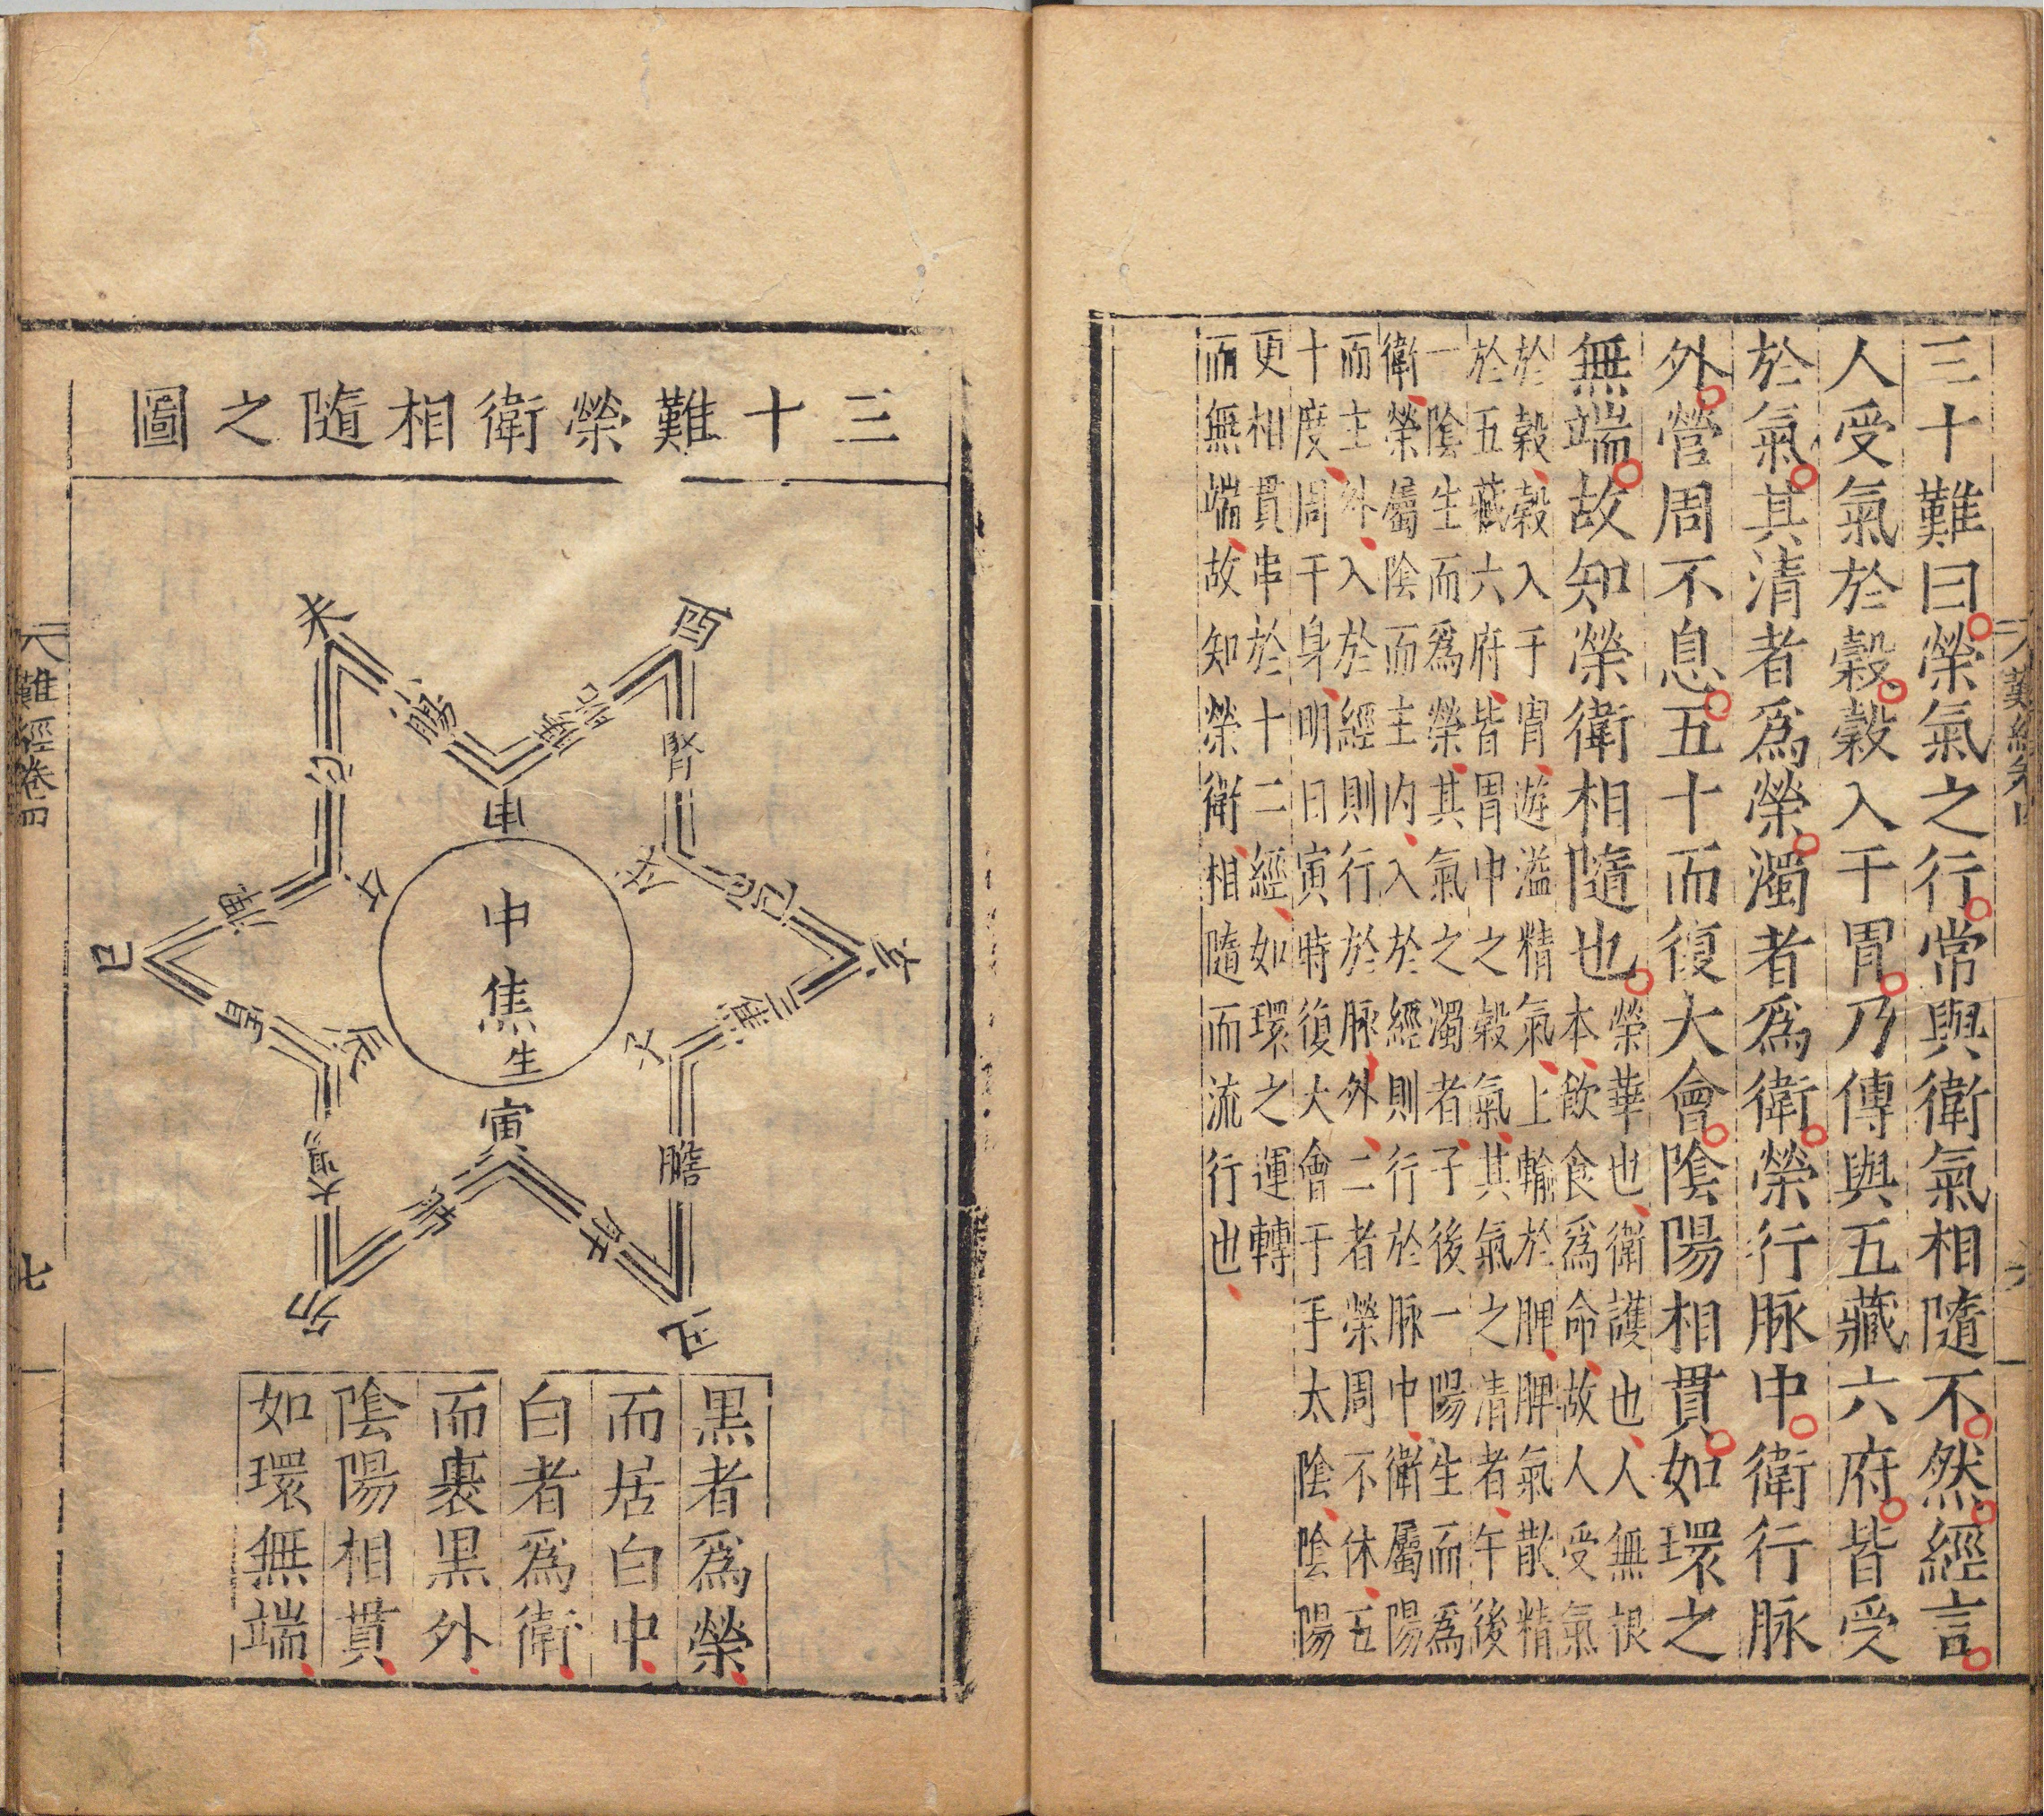 三十難曰榮氣之行常與衛氣相隨不然經言
人受氣於穀穀入于胃乃傳與五藏六府皆受
於氣其清者爲榮濁者爲衛榮行脉中衛行脉
外營周不息五十而復大會陰陽相貫如環之
無端故知榮衛相隨也
榮華也衛護也人無根
本飲食爲命故人受氣
於穀穀入于胃遊溢精氣上輸於脾脾氣散精
於五藏六府皆胃中之穀氣其氣之清者午後
一陰生而爲榮其氣之濁者子後一陽生而爲
衛榮屬陰而主内入於經則行於脉中衛屬陽
而主外入於經則行於脉外二者榮周不休五
十度周于身明日寅時復大會于手太陰陰陽
更相貫串於十二經如環之運轉
而無端故知榮衛相隨而流行也
難經卷四
七
三十難榮衛相隨之圖
未
酉
小腸
膀胱
申
心
腎
午
戌
脾
心包
巳
亥
中焦生
胃
三焦
辰
子
寅
大腸
膽
肺
肝
卯
丑
黒者爲榮
而居白中
白者爲衛
而裹黒外
陰陽相貫
如環無端